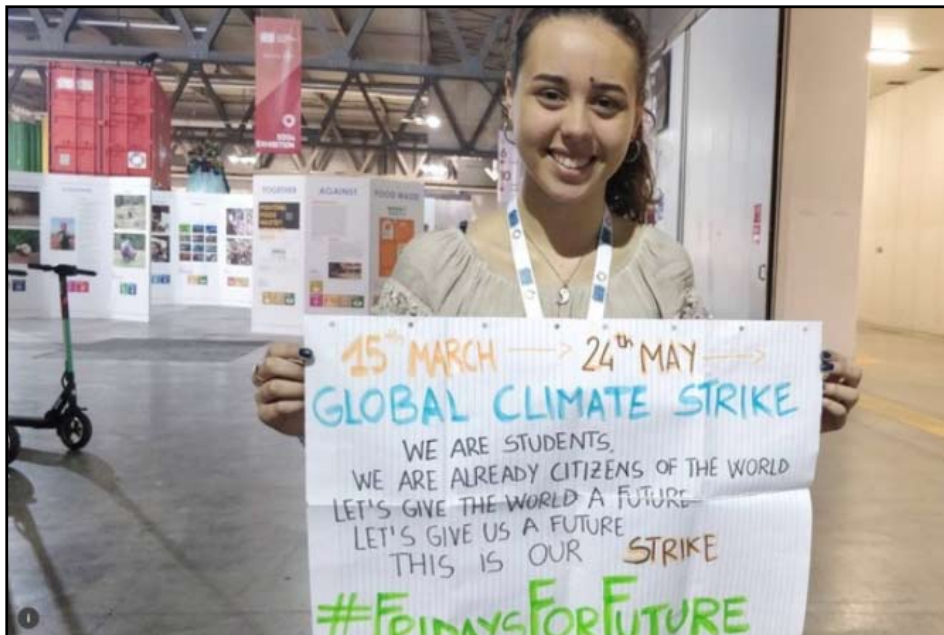 SDGs
EXHIBITION
TOGETHER
AGAINST
FOOD WASTE
FIGHTING
FOOD
WASTE
15th MARCH → 24th MAY →
GLOBAL CLIMATE STRIKE
WE ARE STUDENTS,
WE ARE ALREADY CITIZENS OF THE WORLD
LET'S GIVE THE WORLD A FUTURE
LET'S GIVE US A FUTURE
THIS IS OUR STRIKE
#FRIDAYSFORFUTURE